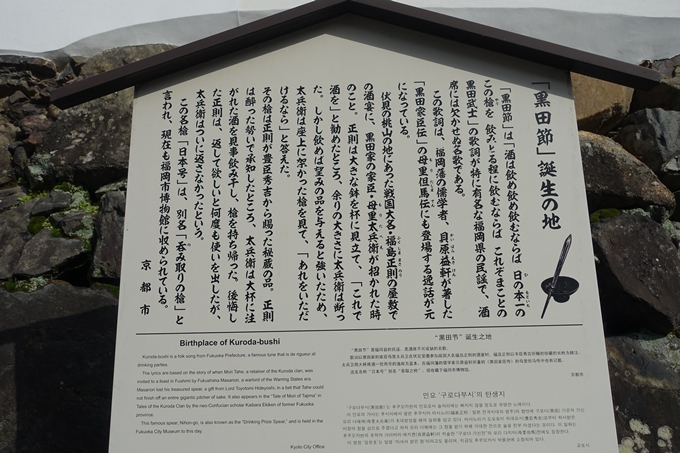 「黒田節」誕生の地
「黒田節」は「酒は飲め飲め飲むならば 日の本一の
この槍を 飲みとる程に飲むならば これぞまことの
黒田武士」の歌詞が特に有名な福岡県の民謡で、酒
席には欠かせぬ名歌である。
この歌詞は、福岡藩の儒学者、貝原益軒が著した
「黒田家臣伝」の母里但馬伝にも登場する逸話が元
になっている。
伏見の桃山の地にあった戦国大名・福島正則の屋敷で
の酒宴に、黒田家の家臣・母里太兵衛が招かれた時
のこと。正則は大きな鉢を杯に見立て、「これで
酒を」と勧めたところ、余りの大きさに太兵衛は断っ
た。しかし飲めば望みの品を与えると強いたため、
太兵衛は座上に架かった槍を見て、「あれをいただ
けるなら」と答えた。
その槍は正則が豊臣秀吉から賜った秘蔵の品。正則
は酔った勢いで承知したところ、太兵衛は大杯に注
がれた酒を見事飲み干し、槍を持ち帰った。後悔し
た正則は、返して欲しいと何度も使いを出したが、
太兵衛はついに返さなかったという。
この名槍「日本号」は、別名「呑み取りの槍」と
言われ、現在も福岡市博物館に収められている。
京都市
Birthplace of Kuroda-bushi
Kuroda-bushi is a folk song from Fukuoka Prefecture, a famous tune that is de rigueur at
drinking parties.
The lyrics are based on the story of when Mori Tahe, a retainer of the Kuroda clan, was
invited to a feast in Fushimi by Fukushima Masanori, a warlord of the Warring States era.
Masanori lost his treasured spear, a gift from Lord Toyotomi Hideyoshi, in a bet that Tahe could
not finish off an entire gigantic pitcher of sake. It also appears in the "Tale of Mori of Tajima" in
Tales of the Kuroda Clan by the neo-Confucian scholar Kaibara Ekiken of former Fukuoka
province.
This famous spear, Nihon-go, is also known as the "Drinking Prize Spear," and is held in the
Fukuoka City Museum to this day.
Kyoto City Office
"黑田节"诞生之地
京都市
민요 '구로다부시'의 탄생지
교토시